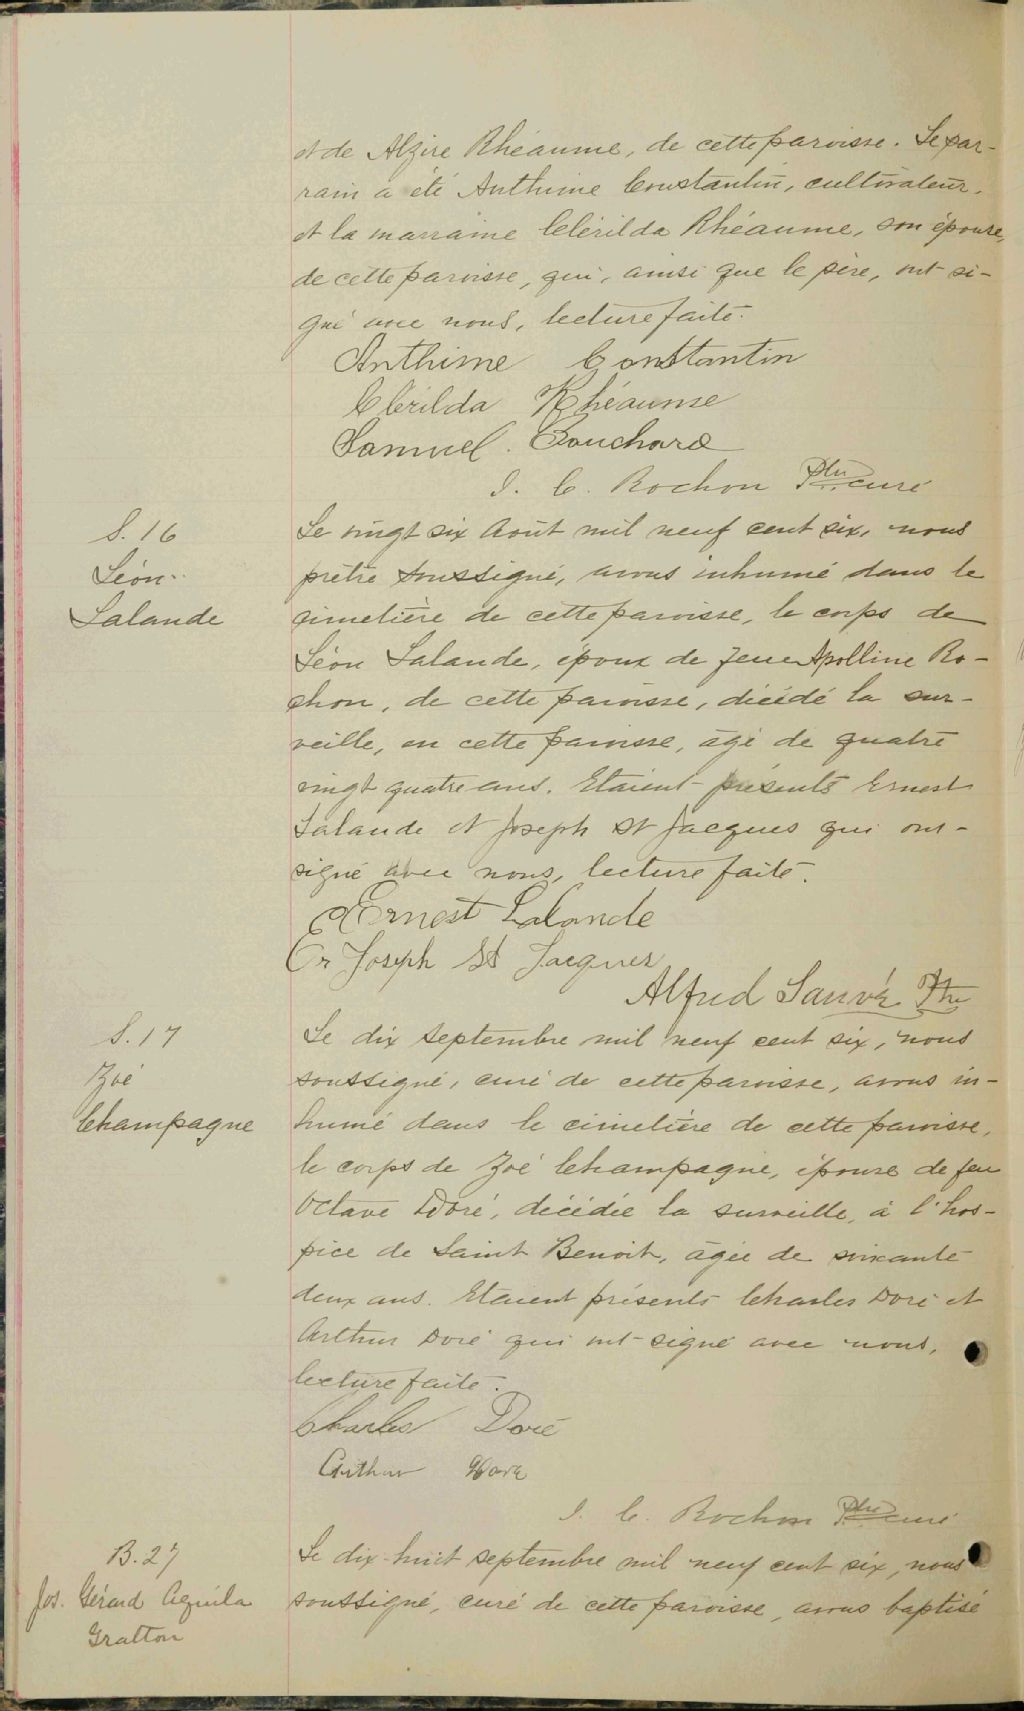 et de Alzire Rhéaume, de cette paroisse. Le par-
rain a été Anthime Constantin, cultivateur,
et la marraine Clérilda Rhéaume, son épouse,
de cette paroisse, qui, ainsi que le père, ont si-
gné avec nous, lecture faite.
Anthime Constantin
Clérilda Rhéaume
Samuel Bouchard
J. C. Rochon Ptre curé
S. 16
Léon
Lalande
Le vingt six Août mil neuf cent six, nous
prêtre soussigné, avons inhumé dans le
cimetière de cette paroisse, le corps de
Léon Lalande, époux de feue Apolline Ro-
chon, de cette paroisse, décédé la sur-
veille, en cette paroisse, âgé de quatre
vingt quatre ans. Etaient présents Ernest
Lalande et Joseph St Jacques qui ont
signé avec nous, lecture faite.
Ernest Lalande
Joseph St Jacques
Alfred Sauvé Ptre
S. 17
Zoé
Champagne
Le dix septembre mil neuf cent six, nous
soussigné, curé de cette paroisse, avons in-
humé dans le cimetière de cette paroisse,
le corps de Zoé Champagne, épouse de feu
Octave Doré, décédée la surveille, à l'hos-
pice de Saint Benoit, âgée de soixante
deux ans. Etaient présents Charles Doré et
Arthur Doré qui ont signé avec nous,
lecture faite.
Charles Doré
Arthur Dore
J. C. Rochon Ptre curé
B. 27
Jos. Gérard Aquila
Gratton
Le dix-huit septembre mil neuf cent six, nous
soussigné, curé de cette paroisse, avons baptisé